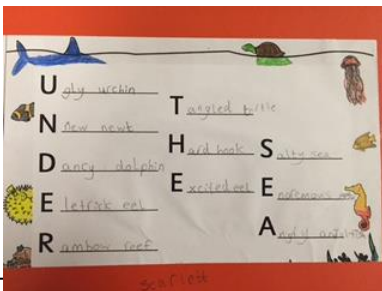 Ugly urchin
New newt
Dancy dolphin
Electrick eel
Rainbow reef
Taggled turtle
Hard hook
Excited eel
Salty sea
Enoremous
Angry
scarlett